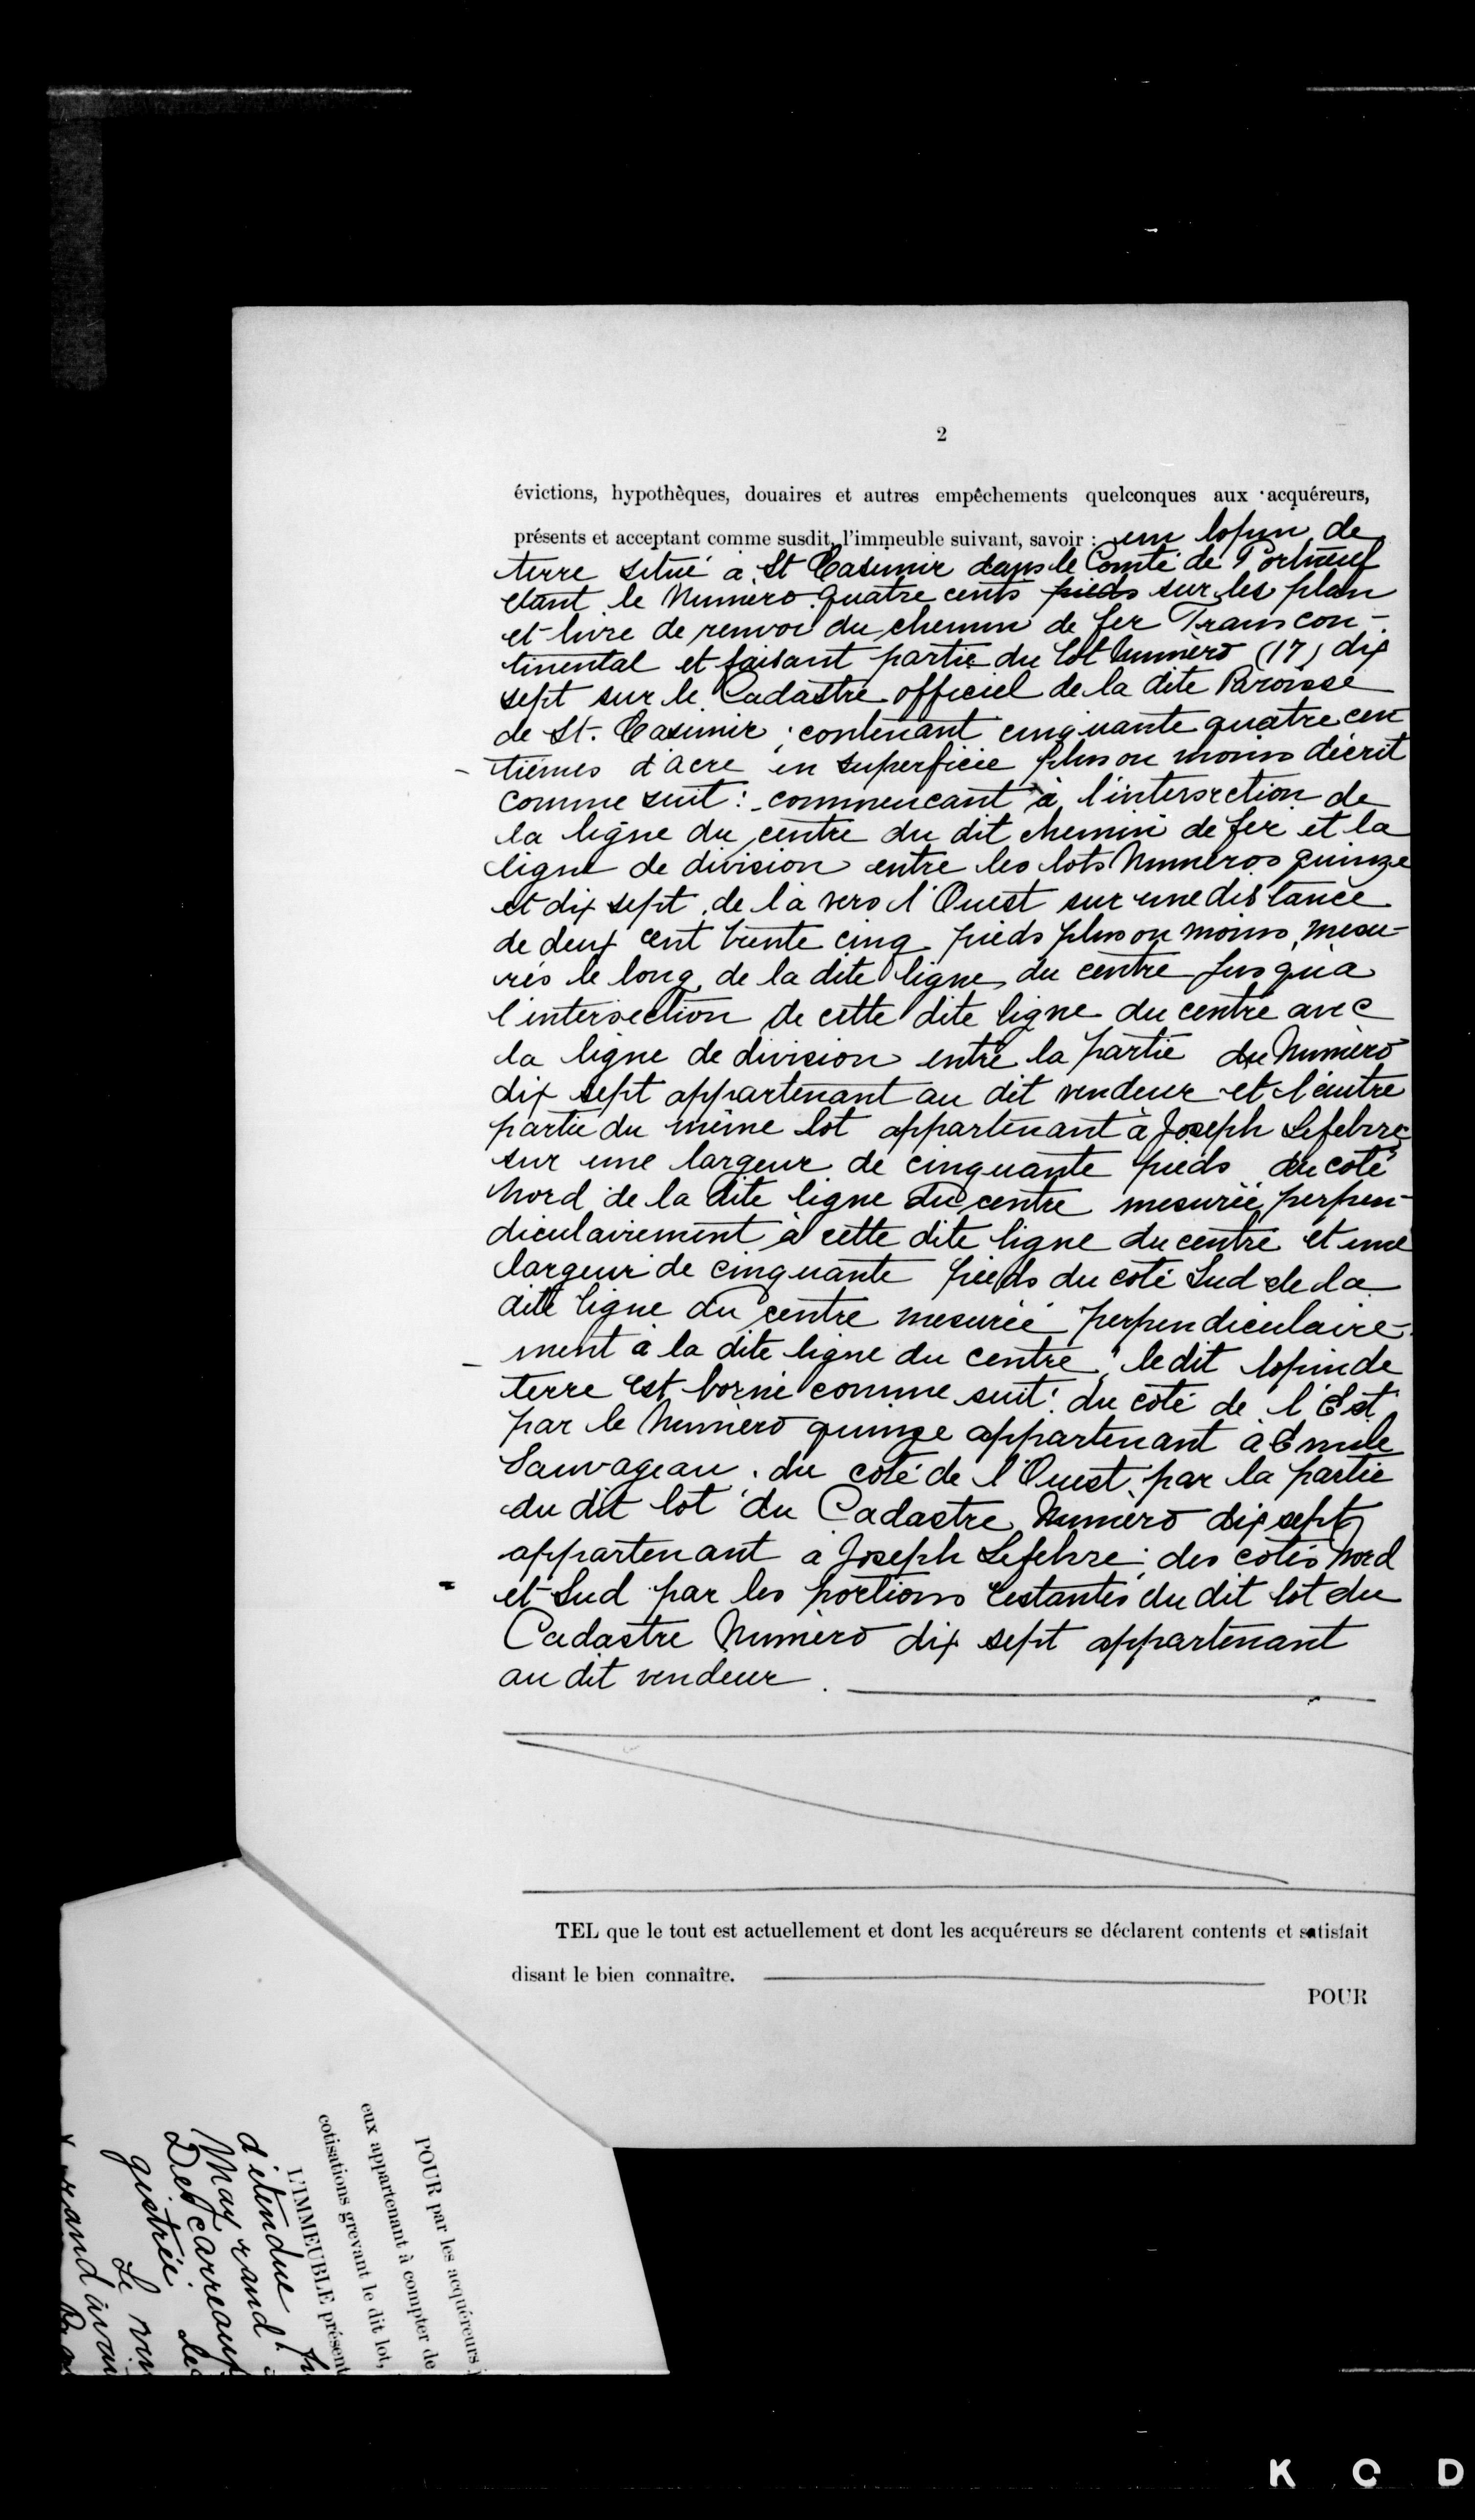 2
évictions, hypothèques, douaires et autres empêchements quelconques aux acquéreurs,
présents et acceptant comme susdit, l'immeuble suivant, savoir : un lopin de
terre situé à St Casimir dans le Comté de Portneuf
étant le Numéro quatre cents pieds sur les plan
et livre de renvoi du chemin de fer Transcon-
tinental et faisant partie du lot Numéro (17) dix
sept sur le Cadastre officiel de la dite Paroisse
de St. Casimir ; contenant cinquante quatre cen
tièmes d'acre en superficie plus ou moins décrit
comme suit : commencant à l'intersection de
la ligne du centre du dit chemin de fer et la
ligne de division entre les lots Numéros quinze
et dix sept, de là vers l'Ouest sur une distance
de deux cent trente cinq pieds plus ou moins, mesu-
rés le long de la dite ligne du centre jusqua
l'intersection de cette dite ligne du centre avec
la ligne de division entre la partie du Numéro
dix sept appartenant au dit vendeur et l'autre
partie du même lot appartenant à Joseph Lefebvre
sur une largeur de cinquante pieds du coté
Nord de la dite ligne du centre mesurée perpen-
diculairement à cette dite ligne du centre et une
largeur de cinquante pieds du coté Sud de la
dite ligne du centre mesurée perpendiculaire-
ment à la dite ligne du centre, le dit lopin de
terre est borné comme suit : du coté de l'Est
par le Numéro quinze appartenant à Emile
Sauvageau, du coté de l'Ouest par la partie
du dit lot du Cadastre Numéro dix sept
appartenant a Joseph Lefebvre ; des cotés Nord
et Sud par les portions restantes du dit lot du
Cadastre Numéro dix sept appartenant
au dit vendeur.
TEL que le tout est actuellement et dont les acquéreurs se déclarent contents et satisfait
disant le bien connaître.
POUR
POUR par les acquéreurs
eux appartenant à compter de
cotisations grevant le dit lot,
L'IMMEUBLE présent
d'étendue
Mayrand
Descarreaux
gistrée
Le
KOD